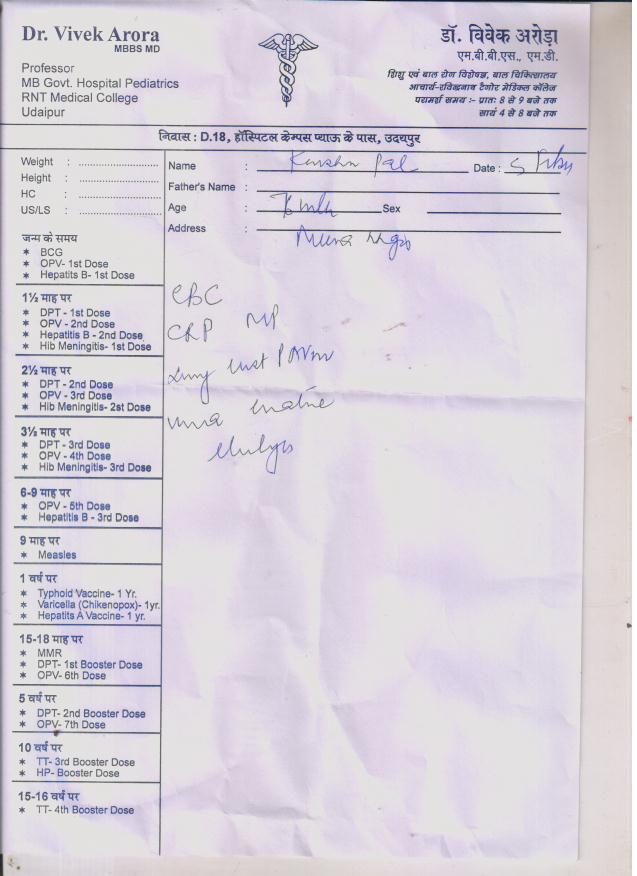 Dr. Vivek Arora
MBBS MD
Professor
MB Govt. Hospital Pediatrics
RNT Medical College
Udaipur
डॉ. विवेक अरोड़ा
एम.बी.बी.एस., एम.डी.
शिशु एवं बाल रोग विशेषज्ञ, बाल चिकित्सालय
आचार्य-रविन्द्रनाथ टैगोर मेडिकल कॉलेज
परामर्श समय :- प्रातः 8 से 9 बजे तक
सायं 4 से 8 बजे तक
निवास : D.18, हॉस्पिटल केम्पस प्याऊ के पास, उदयपुर
Weight :
Height :
HC :
US/LS :
Name : Pal Date : 5
Father's Name :
Age : Sex
Address :
CBC
CRP MP
जन्म के समय
* BCG
* OPV- 1st Dose
* Hepatits B- 1st Dose
1½ माह पर
* DPT - 1st Dose
* OPV - 2nd Dose
* Hepatitis B - 2nd Dose
* Hib Meningitis- 1st Dose
2½ माह पर
* DPT - 2nd Dose
* OPV - 3rd Dose
* Hib Meningitis- 2st Dose
3½ माह पर
* DPT - 3rd Dose
* OPV - 4th Dose
* Hib Meningitis- 3rd Dose
6-9 माह पर
* OPV - 5th Dose
* Hepatitis B - 3rd Dose
9 माह पर
* Measles
1 वर्ष पर
* Typhoid Vaccine- 1 Yr.
* Varicella (Chikenopox)- 1yr.
* Hepatits A Vaccine- 1 yr.
15-18 माह पर
* MMR
* DPT- 1st Booster Dose
* OPV- 6th Dose
5 वर्ष पर
* DPT- 2nd Booster Dose
* OPV- 7th Dose
10 वर्ष पर
* TT- 3rd Booster Dose
* HP- Booster Dose
15-16 वर्ष पर
* TT- 4th Booster Dose